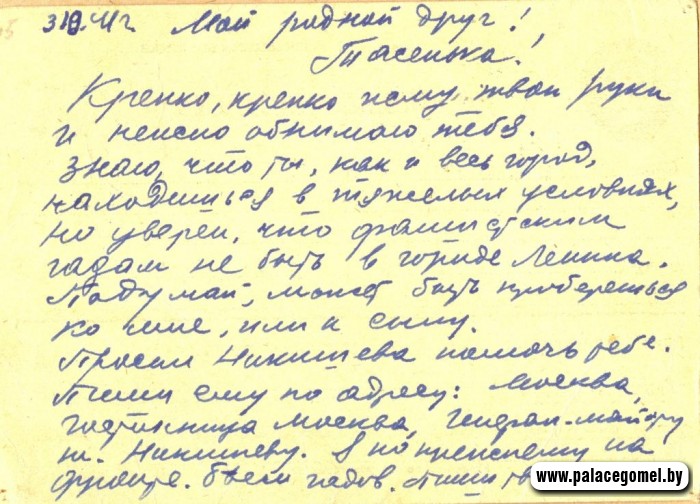 Мой родной друг!
Тасенька!
Крепко, крепко жму твои руки
и нежно обнимаю тебя.
Знаю, что ты, как и весь город,
находишься в тяжелых условиях,
но уверен, что фашистским
гадам не быть в городе Ленина.
Подумай, может быть проберешься
ко мне, или к сыну.
Просил Никишева помочь тебе.
Пиши ему по адресу: Москва,
гостиница Москва, Генерал-майору
т. Никишеву. Я по прежнему на
фронте. Бьем гадов. Пиши
www.palacegomel.by